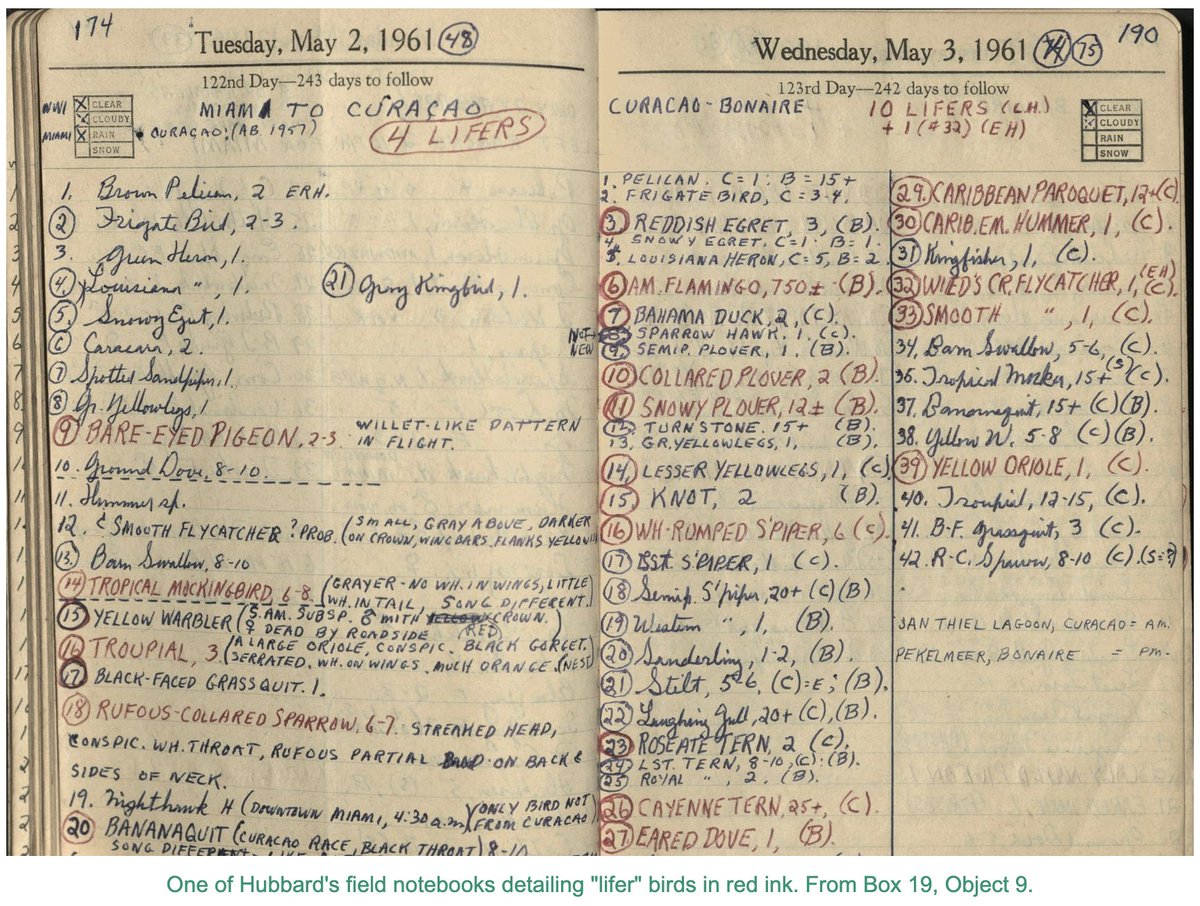 174
Tuesday, May 2, 1961 48
122nd Day—243 days to follow
NWI
MIAMI
CLEAR
CLOUDY
RAIN
SNOW
MIAMI TO CURAÇAO
CURAÇAO: (AB. 1957)
4 LIFERS
1. Brown Pelican, 2 ERH.
2 Frigate Bird, 2-3.
3. Green Heron, 1.
4. Louisiana ", 1.
5. Snowy Egret, 1.
6 Caracara, 2.
7 Spotted Sandpiper, 1.
8 Gr. Yellowlegs, 1
9 BARE-EYED PIGEON, 2-3. WILLET-LIKE PATTERN
IN FLIGHT.
10. Ground Dove, 8-10.
11. Hummer sp.
12. SMOOTH FLYCATCHER ? PROB. (SMALL, GRAY ABOVE, DARKER
ON CROWN, WINGBARS. FLANKS YELLOW
13. Barn Swallow, 8-10
14 TROPICAL MOCKINGBIRD, 6-8. (GRAYER - NO WH. IN WINGS, LITTLE
WH. IN TAIL, SONG DIFFERENT.)
15 YELLOW WARBLER (S. AM. SUBSP. ♂ WITH CROWN.
♀ DEAD BY ROADSIDE (RED)
16 TROUPIAL, 3. (A LARGE ORIOLE, CONSPIC. BLACK GORGET.
SERRATED. WH. ON WINGS. MUCH ORANGE. (NEST)
17 BLACK-FACED GRASSQUIT. 1.
18 RUFOUS-COLLARED SPARROW, 6-7. STREAKED HEAD,
CONSPIC. WH. THROAT, RUFOUS PARTIAL BAND ON BACK &
SIDES OF NECK.
19. Nighthawk H (DOWNTOWN MIAMI, 4:30 a.m.) (ONLY BIRD NOT
FROM CURACAO)
20 BANANAQUIT (CURACAO RACE, BLACK THROAT) 8-10
21 Gray Kingbird, 1.
190
Wednesday, May 3, 1961 74 75
123rd Day—242 days to follow
CURACAO-BONAIRE
10 LIFERS (L.H.)
+ 1 (#32) (EH)
CLEAR
CLOUDY
RAIN
SNOW
1. PELICAN. C=1: B=15+
2. FRIGATE BIRD, C=3-4.
3 REDDISH EGRET, 3, (B).
4. SNOWY EGRET. C=1. B=1.
5. LOUISIANA HERON, C=5, B=2.
6 AM. FLAMINGO, 750± (B).
7 BAHAMA DUCK, 2, (C).
NOT
NEW
8 SPARROW HAWK, 1, (C).
9. SEMIP. PLOVER, 1, (B).
10 COLLARED PLOVER, 2 (B).
11 SNOWY PLOVER, 12± (B).
12 TURNSTONE. 15+ (B).
13. GR. YELLOWLEGS, 1, (B).
14 LESSER YELLOWLEGS, 1, (C)
15 KNOT, 2 (B).
16 WH-RUMPED S'PIPER, 6 (C).
17 LST. S'PIPER, 1 (C).
18 Semip. S'piper, 20+ (C)(B)
19 Western ", 1, (B).
20 Sanderling, 1-2, (B).
21 Stilt, 5-6, (C)=E; (B).
22 Laughing Gull, 20+ (C), (B).
23 ROSEATE TERN, 2 (C),
24 LST. TERN, 8-10, (C): (B).
25 ROYAL ", 2, (B).
26 CAYENNE TERN, 25+, (C).
27 EARED DOVE, 1, (B).
29. CARIBBEAN PAROQUET, 12+ (C).
30 CARIB. EM. HUMMER, 1, (C).
31 Kingfisher, 1, (C).
32 WIED'S CR. FLYCATCHER, 1, (EH) (C).
33 SMOOTH ", 1, (C).
34. Barn Swallow, 5-6, (C).
36. Tropical Mocker, 15+ (S) (C).
37. Bananaquit, 15+ (C)(B).
38. Yellow W. 5-8 (C)(B).
39 YELLOW ORIOLE, 1, (C).
40. Troupial, 12-15, (C).
41. B-F. Grassquit, 3 (C).
42. R-C. Sparrow, 8-10 (C).(S=?)
JAN THIEL LAGOON, CURACAO = AM.
PEKELMEER, BONAIRE = PM.
One of Hubbard's field notebooks detailing "lifer" birds in red ink. From Box 19, Object 9.